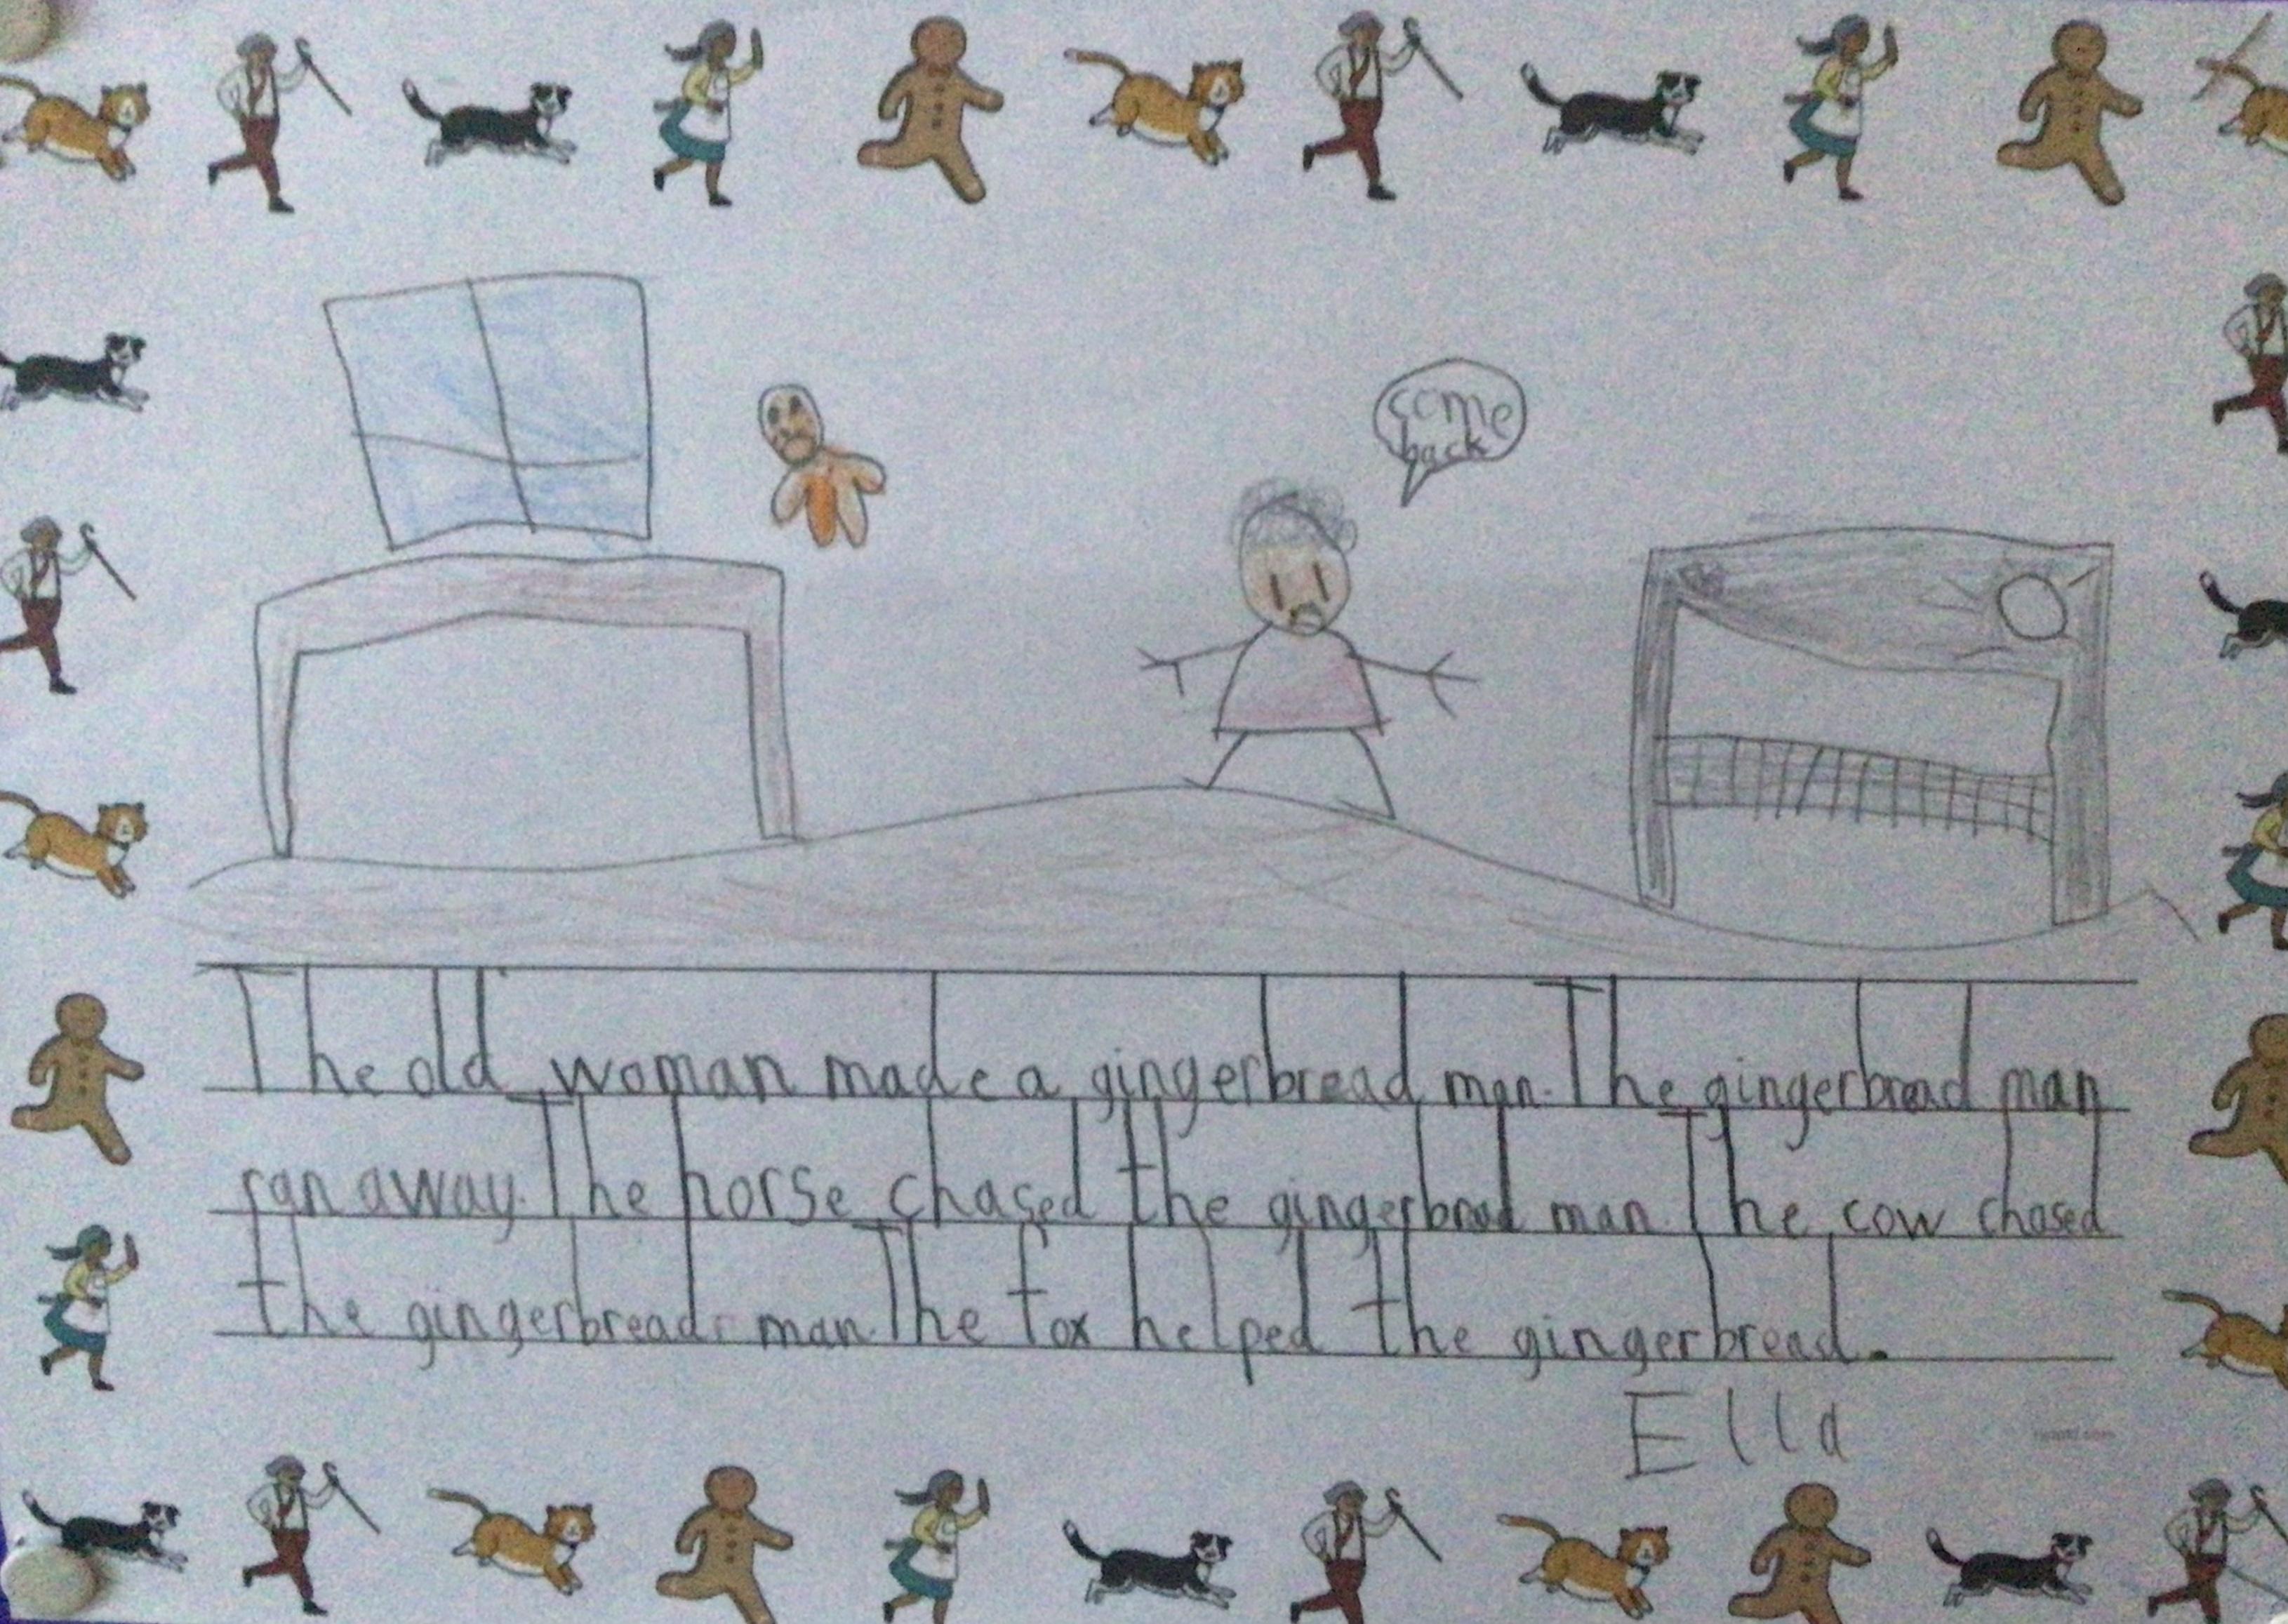 come
back
The old woman made a gingerbread man. The gingerbread man
ran away. The horse chased the gingerbread man. The cow chased
the gingerbread man. The fox helped the gingerbread.
Ella